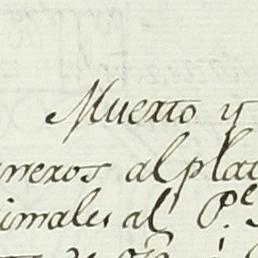 Muerto y
neros al plat
imales al P.e